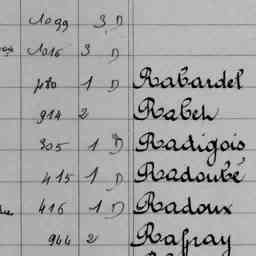 1099 3 D
1016 3 D
1 D Rabardel
914 2 Rabeh
305 1 D Radigois
415 1 D Radoubé
416 1 D Radoux
944 2 Raffray